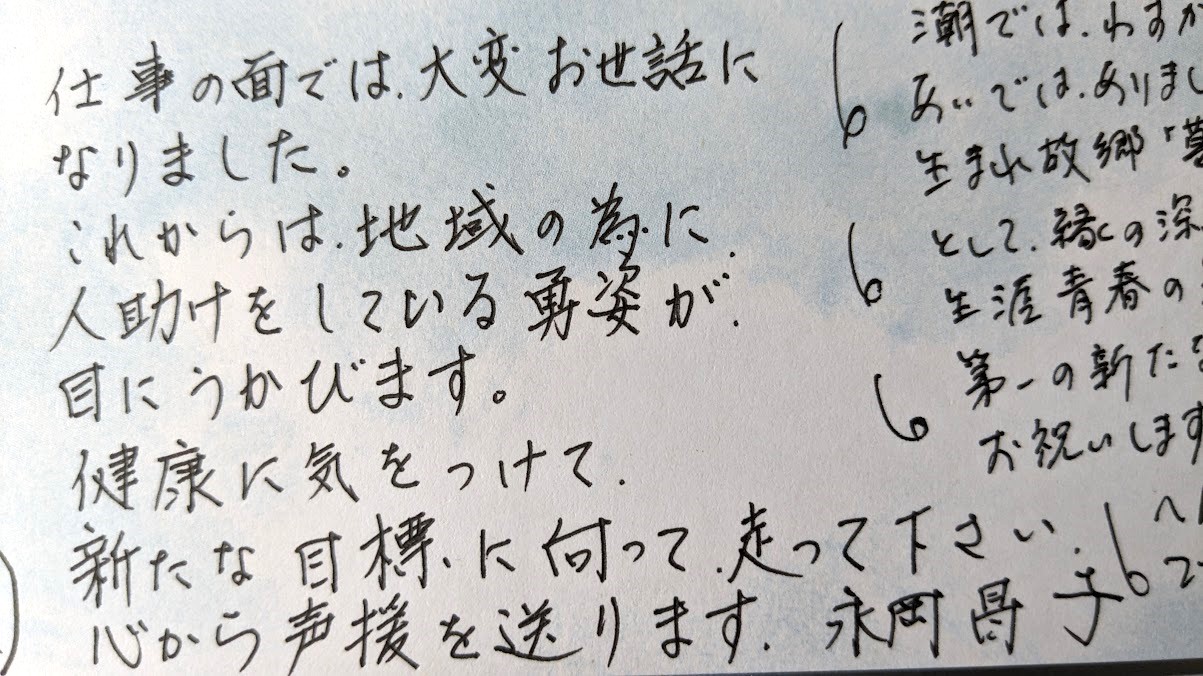 仕事の面では、大変お世話に
なりました。
これからは、地域の為に
人助けをしている勇姿が、
目にうかびます。
健康に気をつけて、
新たな目標に向って、走って下さい、
心から声援を送ります、永岡昌子
潮では、わずか
あいでは、ありまし
生まれ故郷「
として、縁の深
生涯青春の
第一の新たな
お祝いします